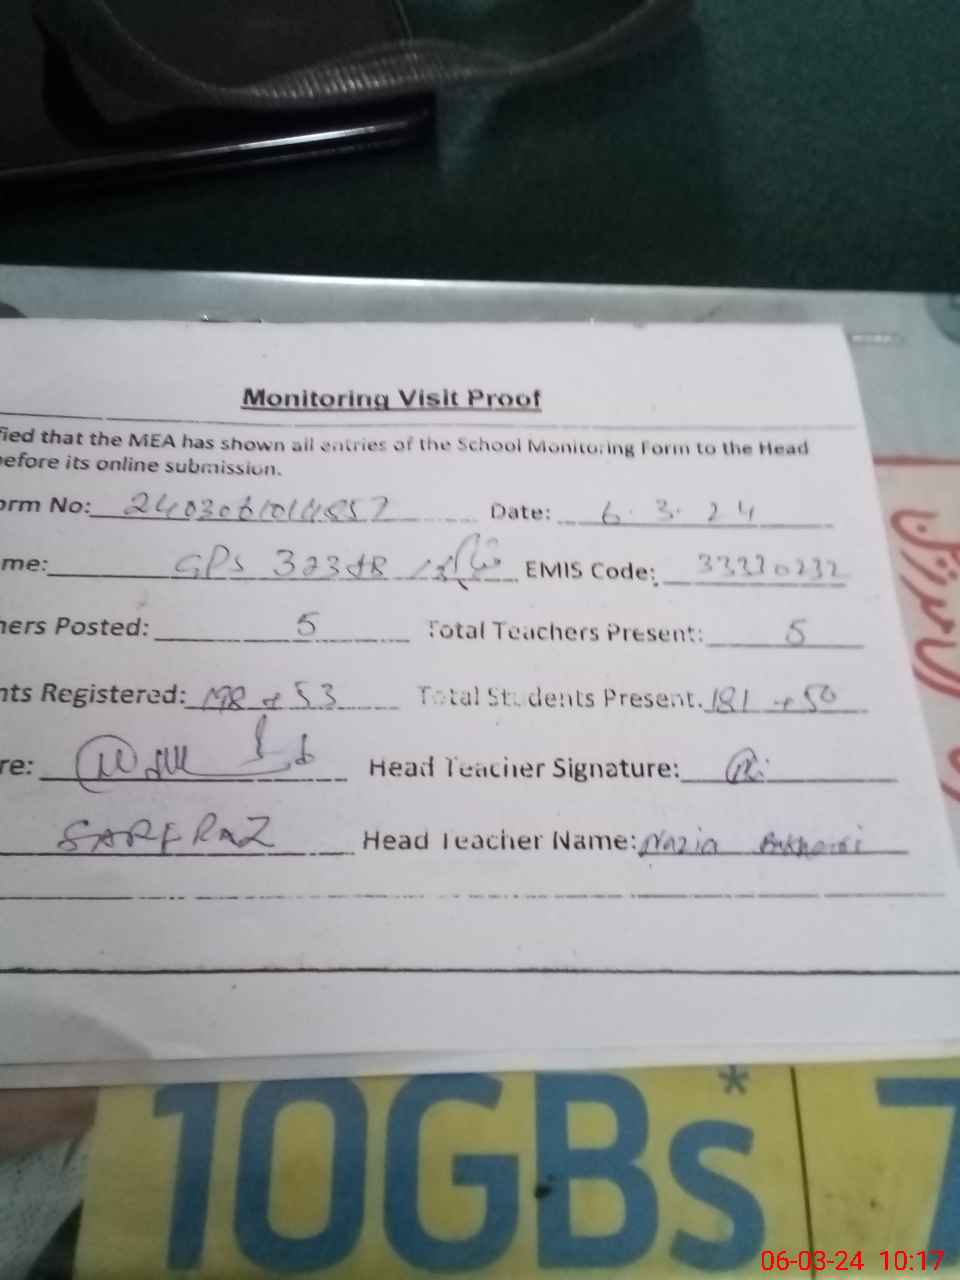 Monitoring Visit Proof
fied that the MEA has shown all entries of the School Monitoring Form to the Head
before its online submission.
orm No: Date: 6.3.24
me: GPS EMIS Code: 33330232
hers Posted: 5 Total Teachers Present: 5
nts Registered: 198 + 53 Total Students Present. 181 + 50
re: Head Teacher Signature:
SARFRAZ Head Teacher Name: Nazia
10GBs* 7
06-03-24 10:17